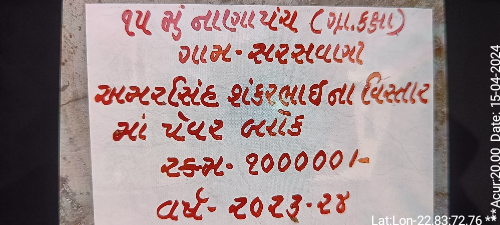 ૧૫ મું નાણાપંચ (ગ્રા.કક્ષા)
ગામ- સરસવાણી
અમરસિંહ શંકરભાઈ ના વિસ્તાર
માં પેવર બ્લોક
રકમ- ૧૦૦૦૦૦/-
વર્ષ- ૨૦૨૩-૨૪
Lat:Lon-22.83:72.76 ** Acur:20.00 Date: 15-04-2024